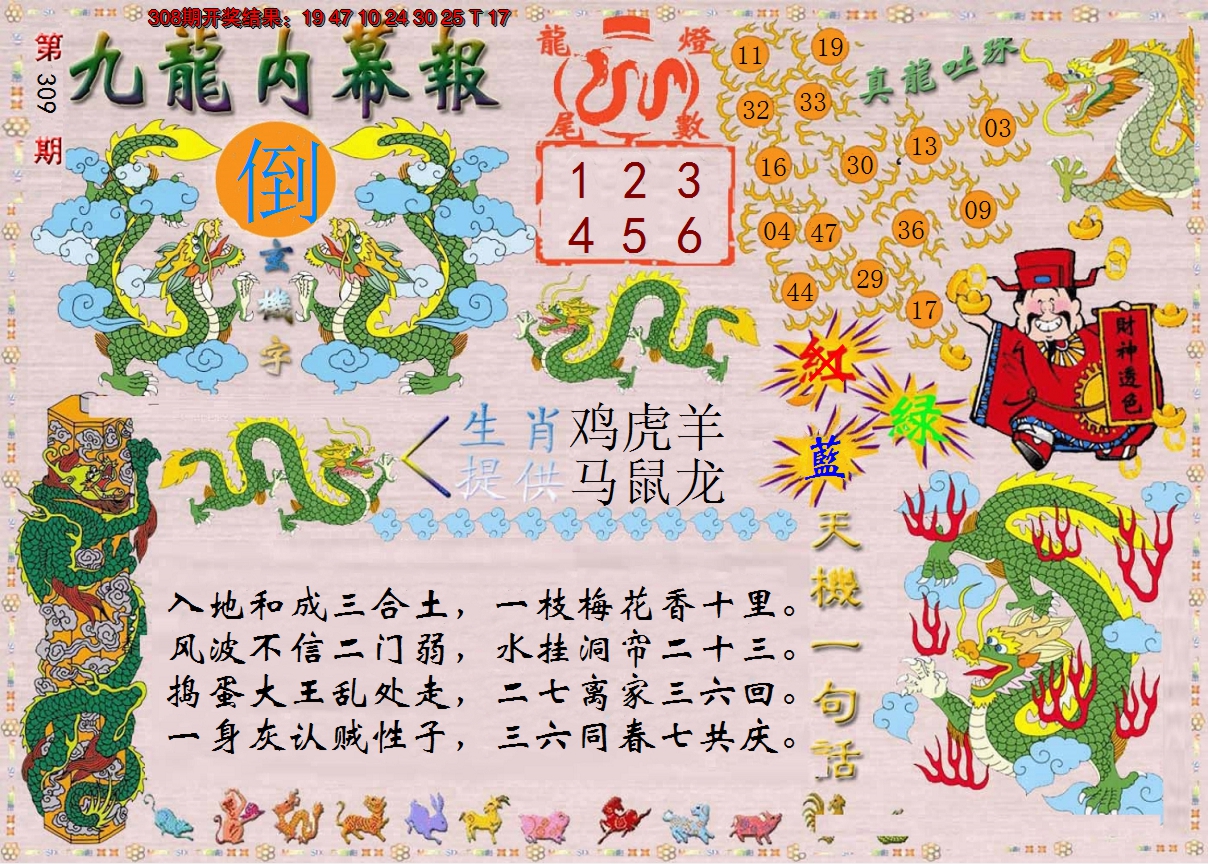 308期开奖结果：19 47 10 24 30 25 T 17
第
309
期
九龍内幕報
倒
玄
機
字
龍 燈
尾 數
1 2 3
4 5 6
真龍吐珠
11 19
32 33
13 03
16 30
04 47 36 09
44 29 17
財神透色
紅
綠
藍
生肖 鸡虎羊
提供 马鼠龙
天機一句話
入地和成三合土，一枝梅花香十里。
风波不信二门弱，水挂洞帘二十三。
捣蛋大王乱处走，二七离家三六回。
一身灰认贼性子，三六同春七共庆。